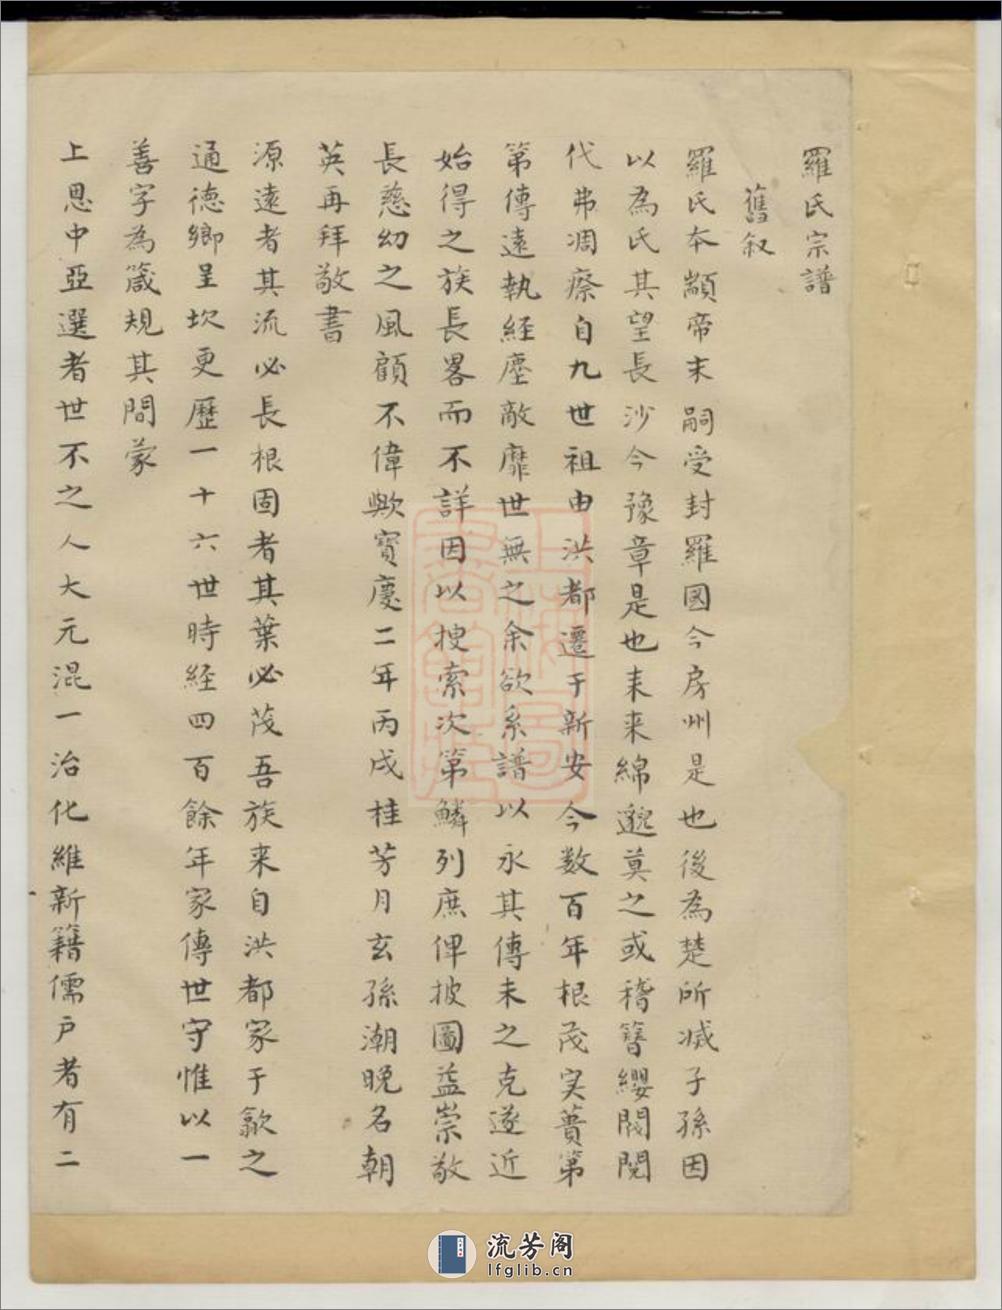 羅氏宗譜
舊叙
羅氏本顓帝末嗣受封羅國今房州是也後為楚所滅子孫因
以為氏其望長沙今豫章是也耒来綿邈莫之或稽簪纓閥閱
代弗凋瘵自九世祖由洪都遷于新安今数百年根茂实蕡第
第傳遠執経塵敵靡世無之余欲系譜以永其傳未之克遂近
始得之族長畧而不詳因以搜索次第鱗列庶俾披圖益崇敬
長慈幼之風顧不偉歟寳慶二年丙戌桂芳月玄孫潮晚名朝
英再拜敬書
源遠者其流必長根固者其葉必茂吾族来自洪都家于歙之
通德鄉呈坎更歷一十六世時経四百餘年家傳世守惟以一
善字為箴規其間蒙
上恩中亞選者世不之人大元混一治化維新籍儒户者有二
上海圖書館藏
流芳阁
lfglib.cn